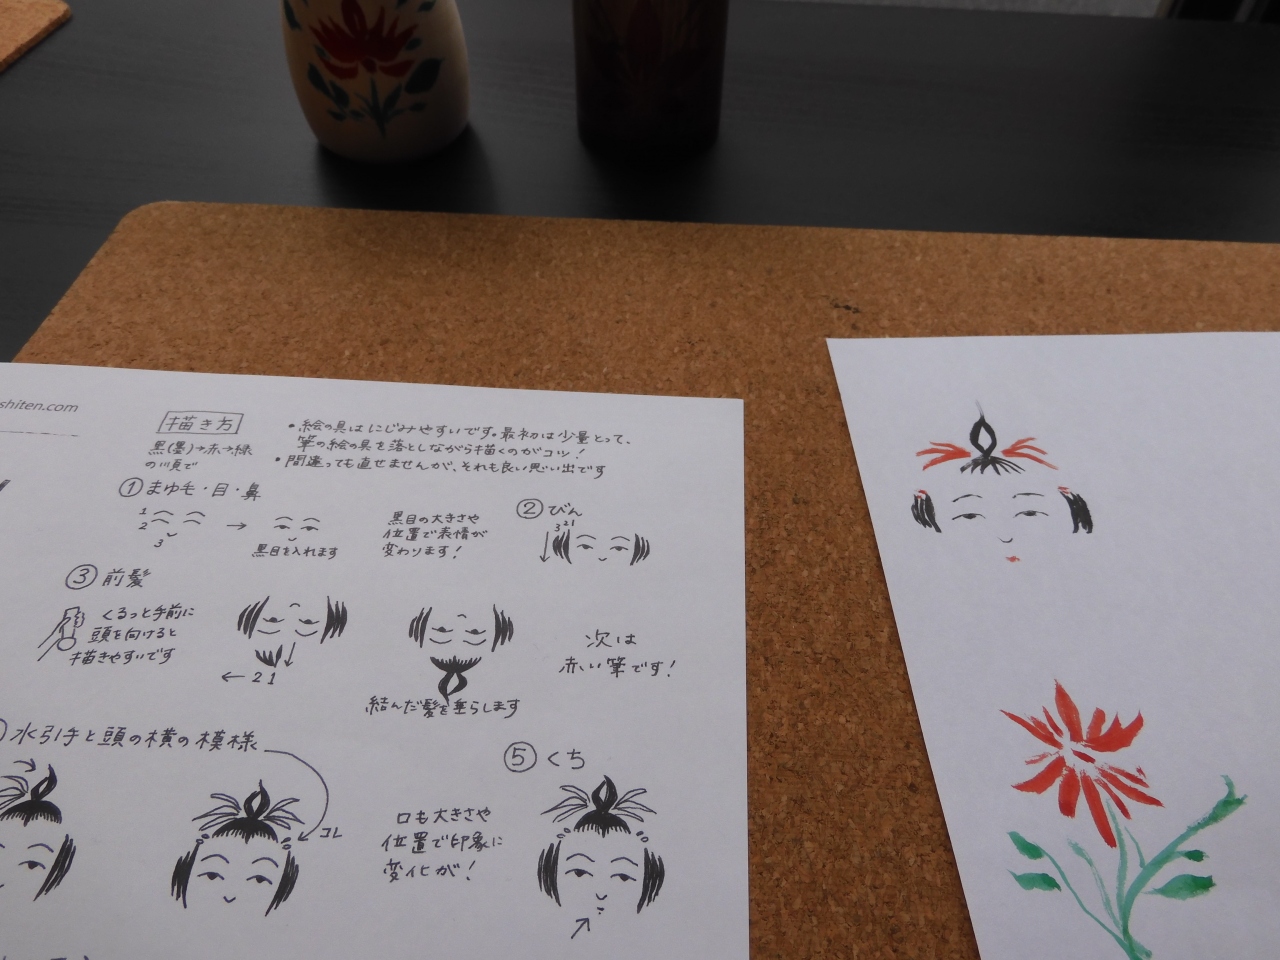 shiten.com
描き方
黒(墨)→赤→緑
の順で
・絵の具はにじみやすいです。最初は少量とって、
筆の絵の具を落としながら描くのがコツ!
・間違っても直せませんが、それも良い思い出です
①まゆ毛・目・鼻
1
2
3
→
黒目を入れます
黒目の大きさや
位置で表情が
変わります!
②びん
3 2 1
③前髪
くるっと手前に
頭を向けると
描きやすいです
←21
結んだ髪を垂らします
次は
赤い筆です!
水引手と頭の横の模様
コレ
⑤くち
口も大きさや
位置で印象に
変化が!